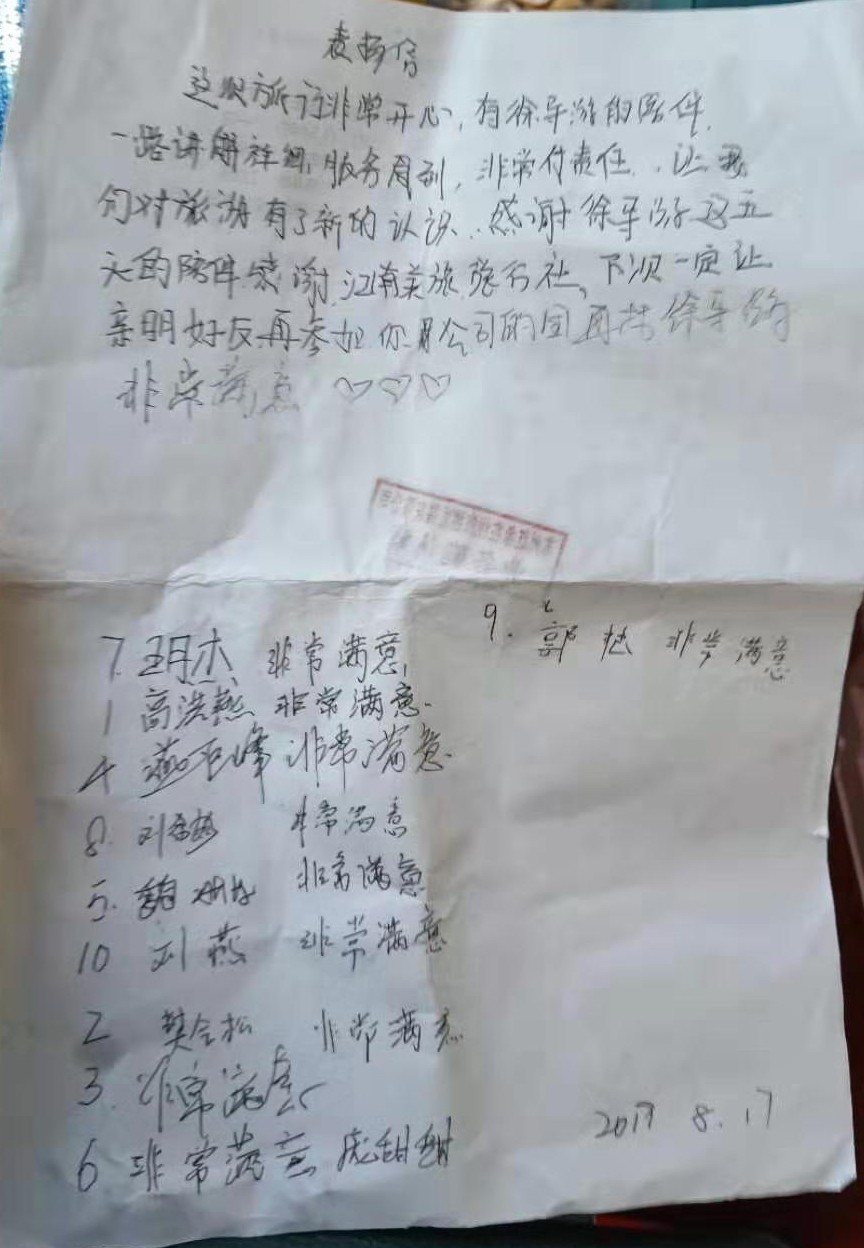 表扬信
这次旅行非常开心,有徐导游的陪伴,
一路讲解祥细,服务周到,非常付责任..让我
们对旅游有了新的认识..感谢徐导游这五
天的陪伴感谢江南美旅旅行社、下次一定让
亲朋好友再参加你公司的团再找徐导游
非常满意 ♡♡♡
7. 非常满意
9. 郭 非常满意
1 高洪燕 非常满意.
4 峰 非常满意.
8. 刘 非常满意
5. 魏 非常满意
10 刘燕 非常满意
2 樊会松 非常满意
3. 非常满意
6 非常满意 庞甜甜
2017 8.17